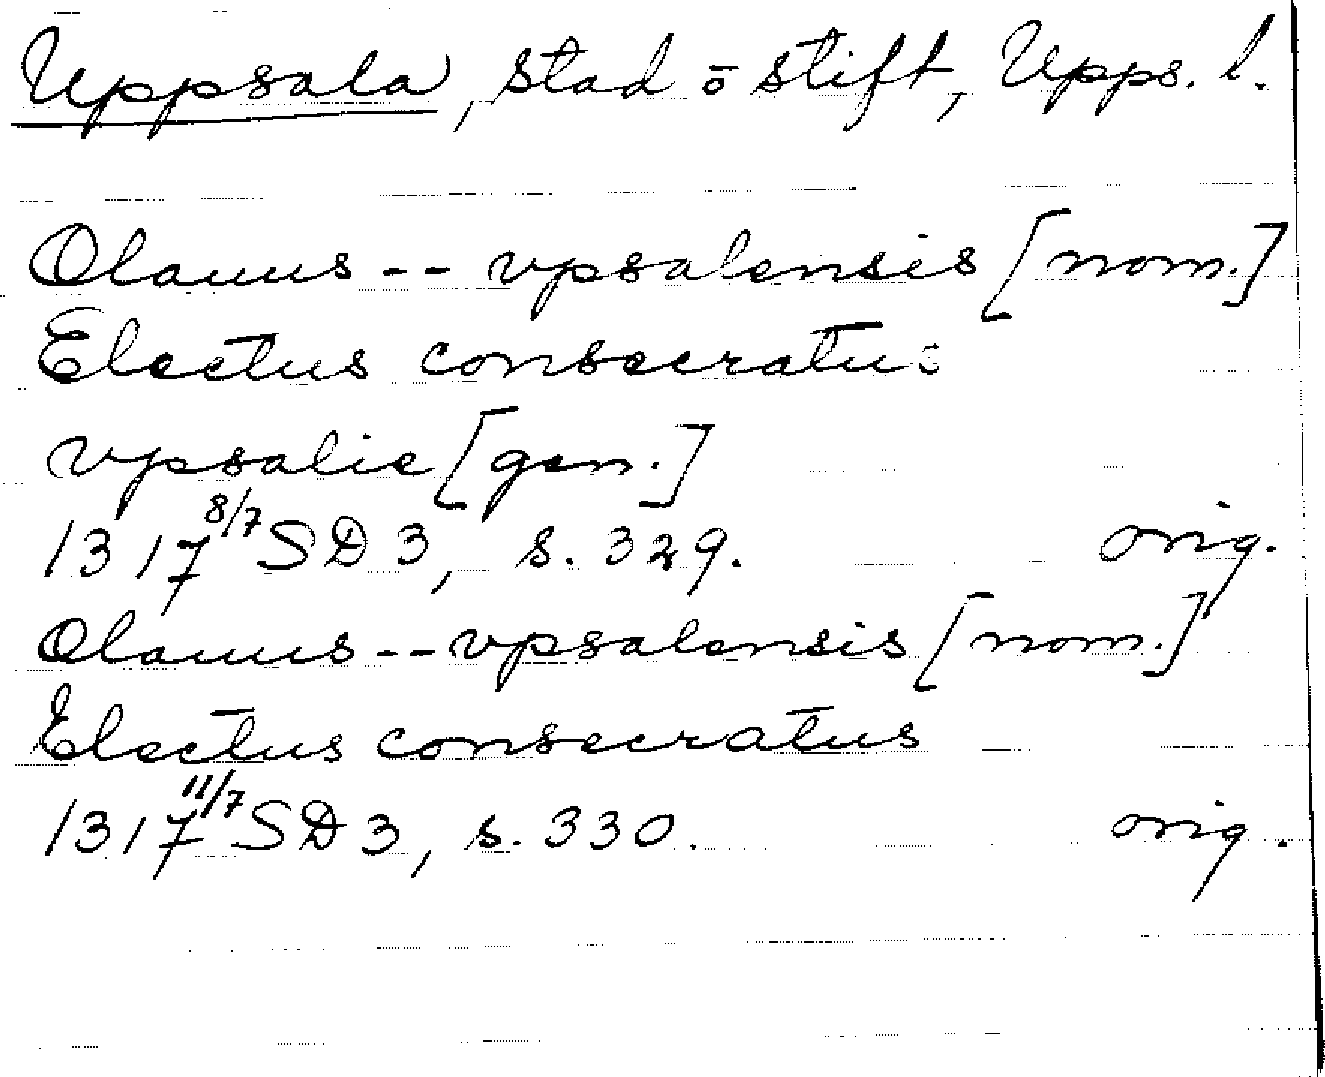 Uppsala, stad ō stift, Upps. l.
Olauus -- vpsalensis [nom.]
Electus consecratus
vpsalie [gen.]
1317 8/7 SD 3, s. 329. orig.
Olauus -- vpsalensis [nom.]
Electus consecratus
1317 11/7 SD 3, s. 330. orig.